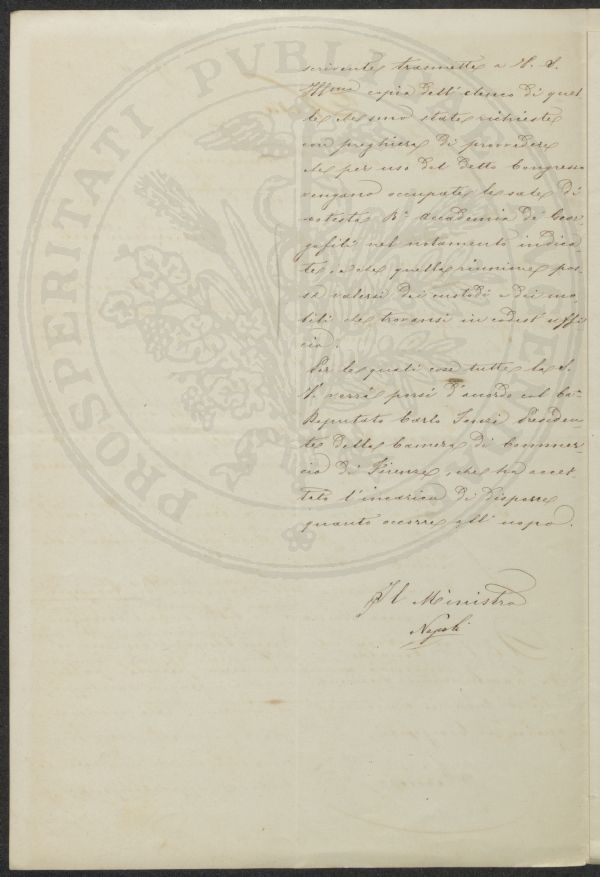 scrivente trasmette a V. S.
Ill.ma copia dell' elenco di quel-
le che sono state richieste
con preghiera di provvedere
che per uso del detto Congresso
vengano occupate le sale di
cotesta R.a Accademia di Geor-
gofili nel notamento indica-
te, e che quella riunione pos-
sa valersi dei custodi e dei mo-
bili che trovansi in codest' uffi-
cio.
Per le quali cose tutte la S.
V. verrà porsi d'accordo col
Deputato Carlo Presiden-
te della Camera di Commer-
cio di Firenze, che ha accet-
tato l'incarico di disporre
quanto occorre all' uopo.
Il Ministro
Napoli
PROSPERITATI PVBLICAE